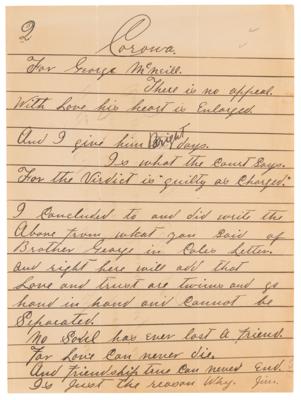 2
Corowa.
For George McNeill.
There is no appeal.
With Love his heart is Enlarged
And I give him Bright days.
Is what the Court Says.
For the Verdict is "guilty as Charged."
I concluded to and did write the
Above from what you Said of
Brother George in Coles letter.
and right here will add that
Love and trust are twins and go
hand in hand and Cannot be
Separated.
No Soul has ever lost a friend.
For Love Can never die.
And friendship true Can never End.
Is just the reason Why. Jim.